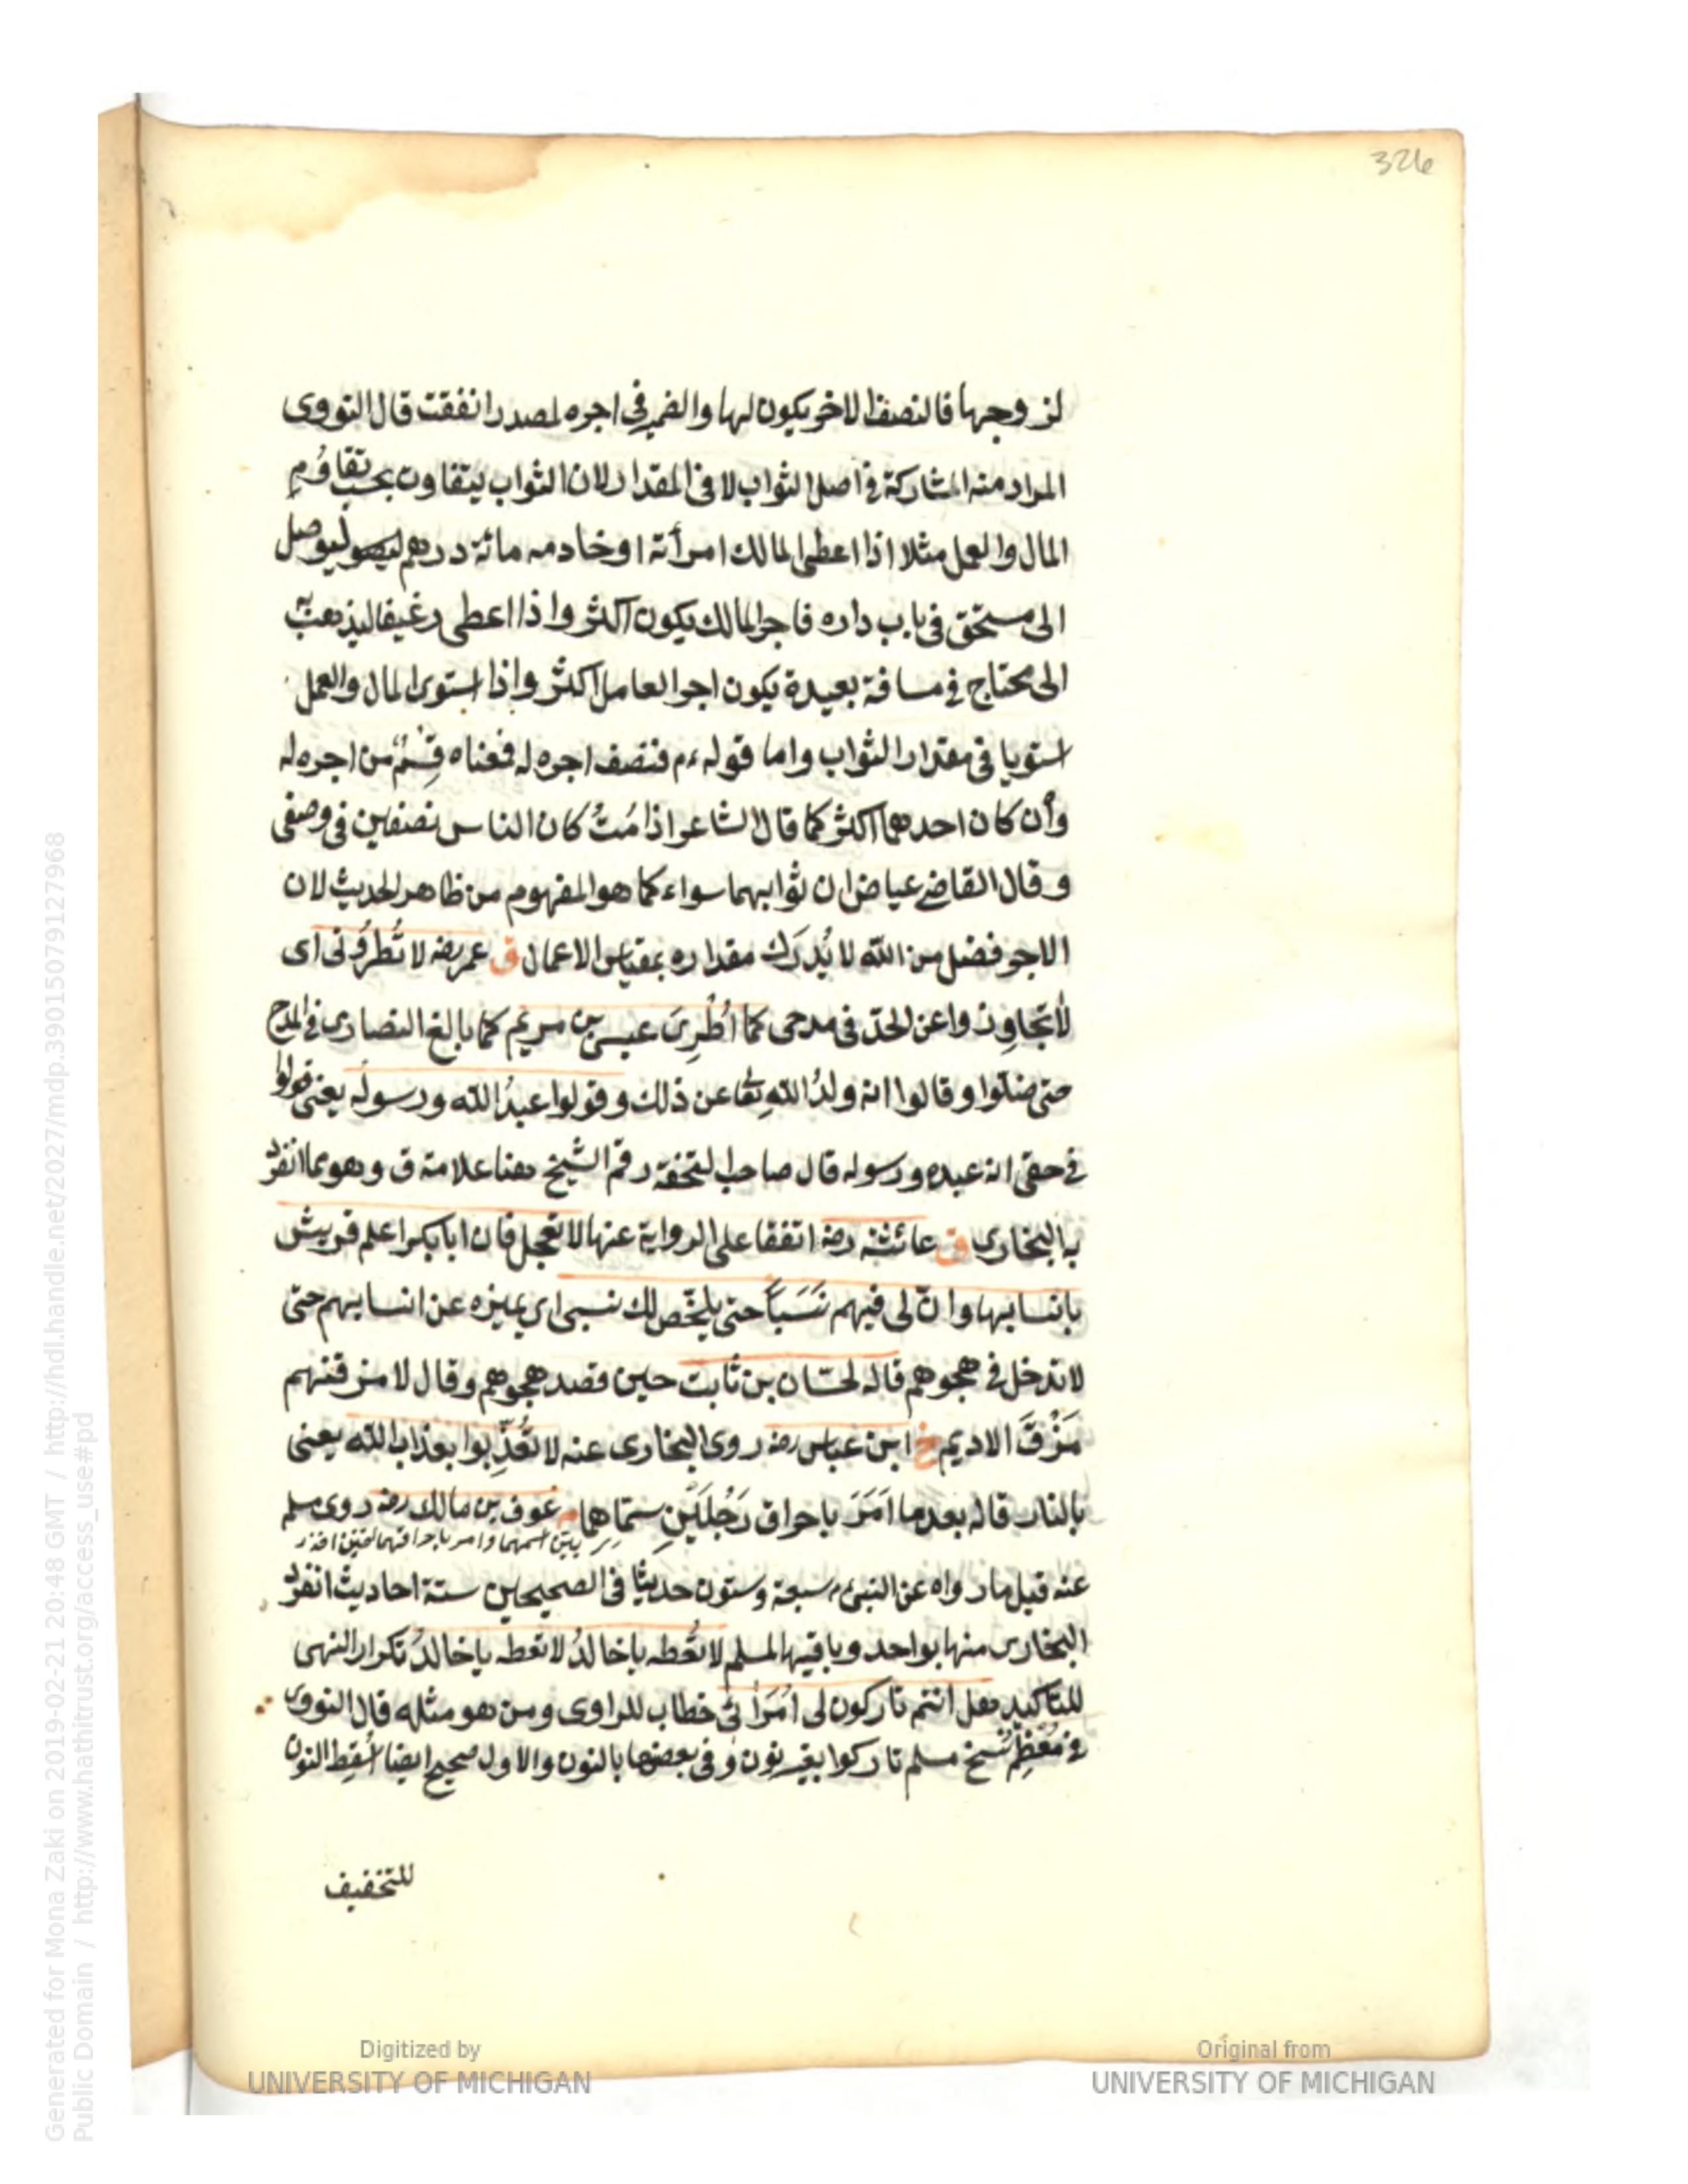 326
لزوجها فالنصف الاخر يكون لها والضمير في اجره لمصدر انفقت قال النووى
المراد منه المشاركة في اصل الثواب لا في المقدار لان الثواب يتفاوت بحسب تفاوت
المال والعمل مثلا اذا اعطى المالك امرأته او خادمه مائة درهم ليوصل
الى مستحق فى باب داره فاجر المالك يكون اكثر واذا اعطى رغيفا ليذهب به
الى محتاج في مسافة بعيدة يكون اجر العامل اكثر واذا استوى المال والعمل
استويا فى مقدار الثواب واما قوله ءم فنصف اجره له فمعناه قِسْمٌ من اجره له
وأن كان احدهما اكثر كما قال الشاعر اذا مُتُّ كان الناس نصفين فى وصفى
وقال القاضي عياض ان ثوابهما سواء كما هو المفهوم من ظاهر الحديث لان
الاجر فضل من الله لا يُدرَك مقداره بمقياس الاعمال ق عمر رضه لا تُطرُونى اى
لا تجاوِزوا عن الحدّ فى مدحى كما اُطْرِىَ عيسى بن مريم كما بالغ النصارى في المدح
حتى ضلّوا وقالوا انه ولدُ اللهِ تعا عن ذلك وقولوا عبدُ الله ورسولُه يعنى قولوا
في حقى انه عبده ورسوله قال صاحب التحفة رقم الشيخ هنا علامة ق وهو مما انفرد
به البخارى ق عائشة رضه اتفقا على الرواية عنها لا تعجل فان ابا بكر اعلم قريش
بانسابها وانّ لى فيهم نَسَباً حتى يلخّص لك نسبى اى يميزه عن انسابهم حتى
لا تدخل في هجوهم قاله لحسّان بن ثابت حين قصد هجوهم وقال لامزقنهم
مَزْقَ الاديم خ ابن عباس رضه روى البخارى عنه لا تُعَذِّبوا بعذاب الله يعنى
بالنار قاله بعدما اَمَرَ باحراق رَجُلَيْنِ سمّاهما م عوف بن مالك رضه روى مسلم
بيّن اسمهما وامر باحراقهما
عنه قيل ما رواه عن النبى ءم سبعة وستون حديثا فى الصحيحين ستة احاديث انفرد
البخارى منها بواحد وباقيها لمسلم لا تُعْطه يا خالدُ لا تعطه يا خالدُ تكرار النهى
للتاكيد هل انتم تاركون لى اُمَرَائى خطاب للراوى ومن هو مثله قال النووى
في مُعْظم نُسَخ مسلم تاركوا بغير نون وفى بعضها بالنون والاول صحيح ايضا اُسْقِط النون
للتخفيف
Digitized by
UNIVERSITY OF MICHIGAN
Original from
UNIVERSITY OF MICHIGAN
Generated for Mona Zaki on 2019-02-21 20:48 GMT / http://hdl.handle.net/2027/mdp.39015079127968
Public Domain / http://www.hathitrust.org/access_use#pd